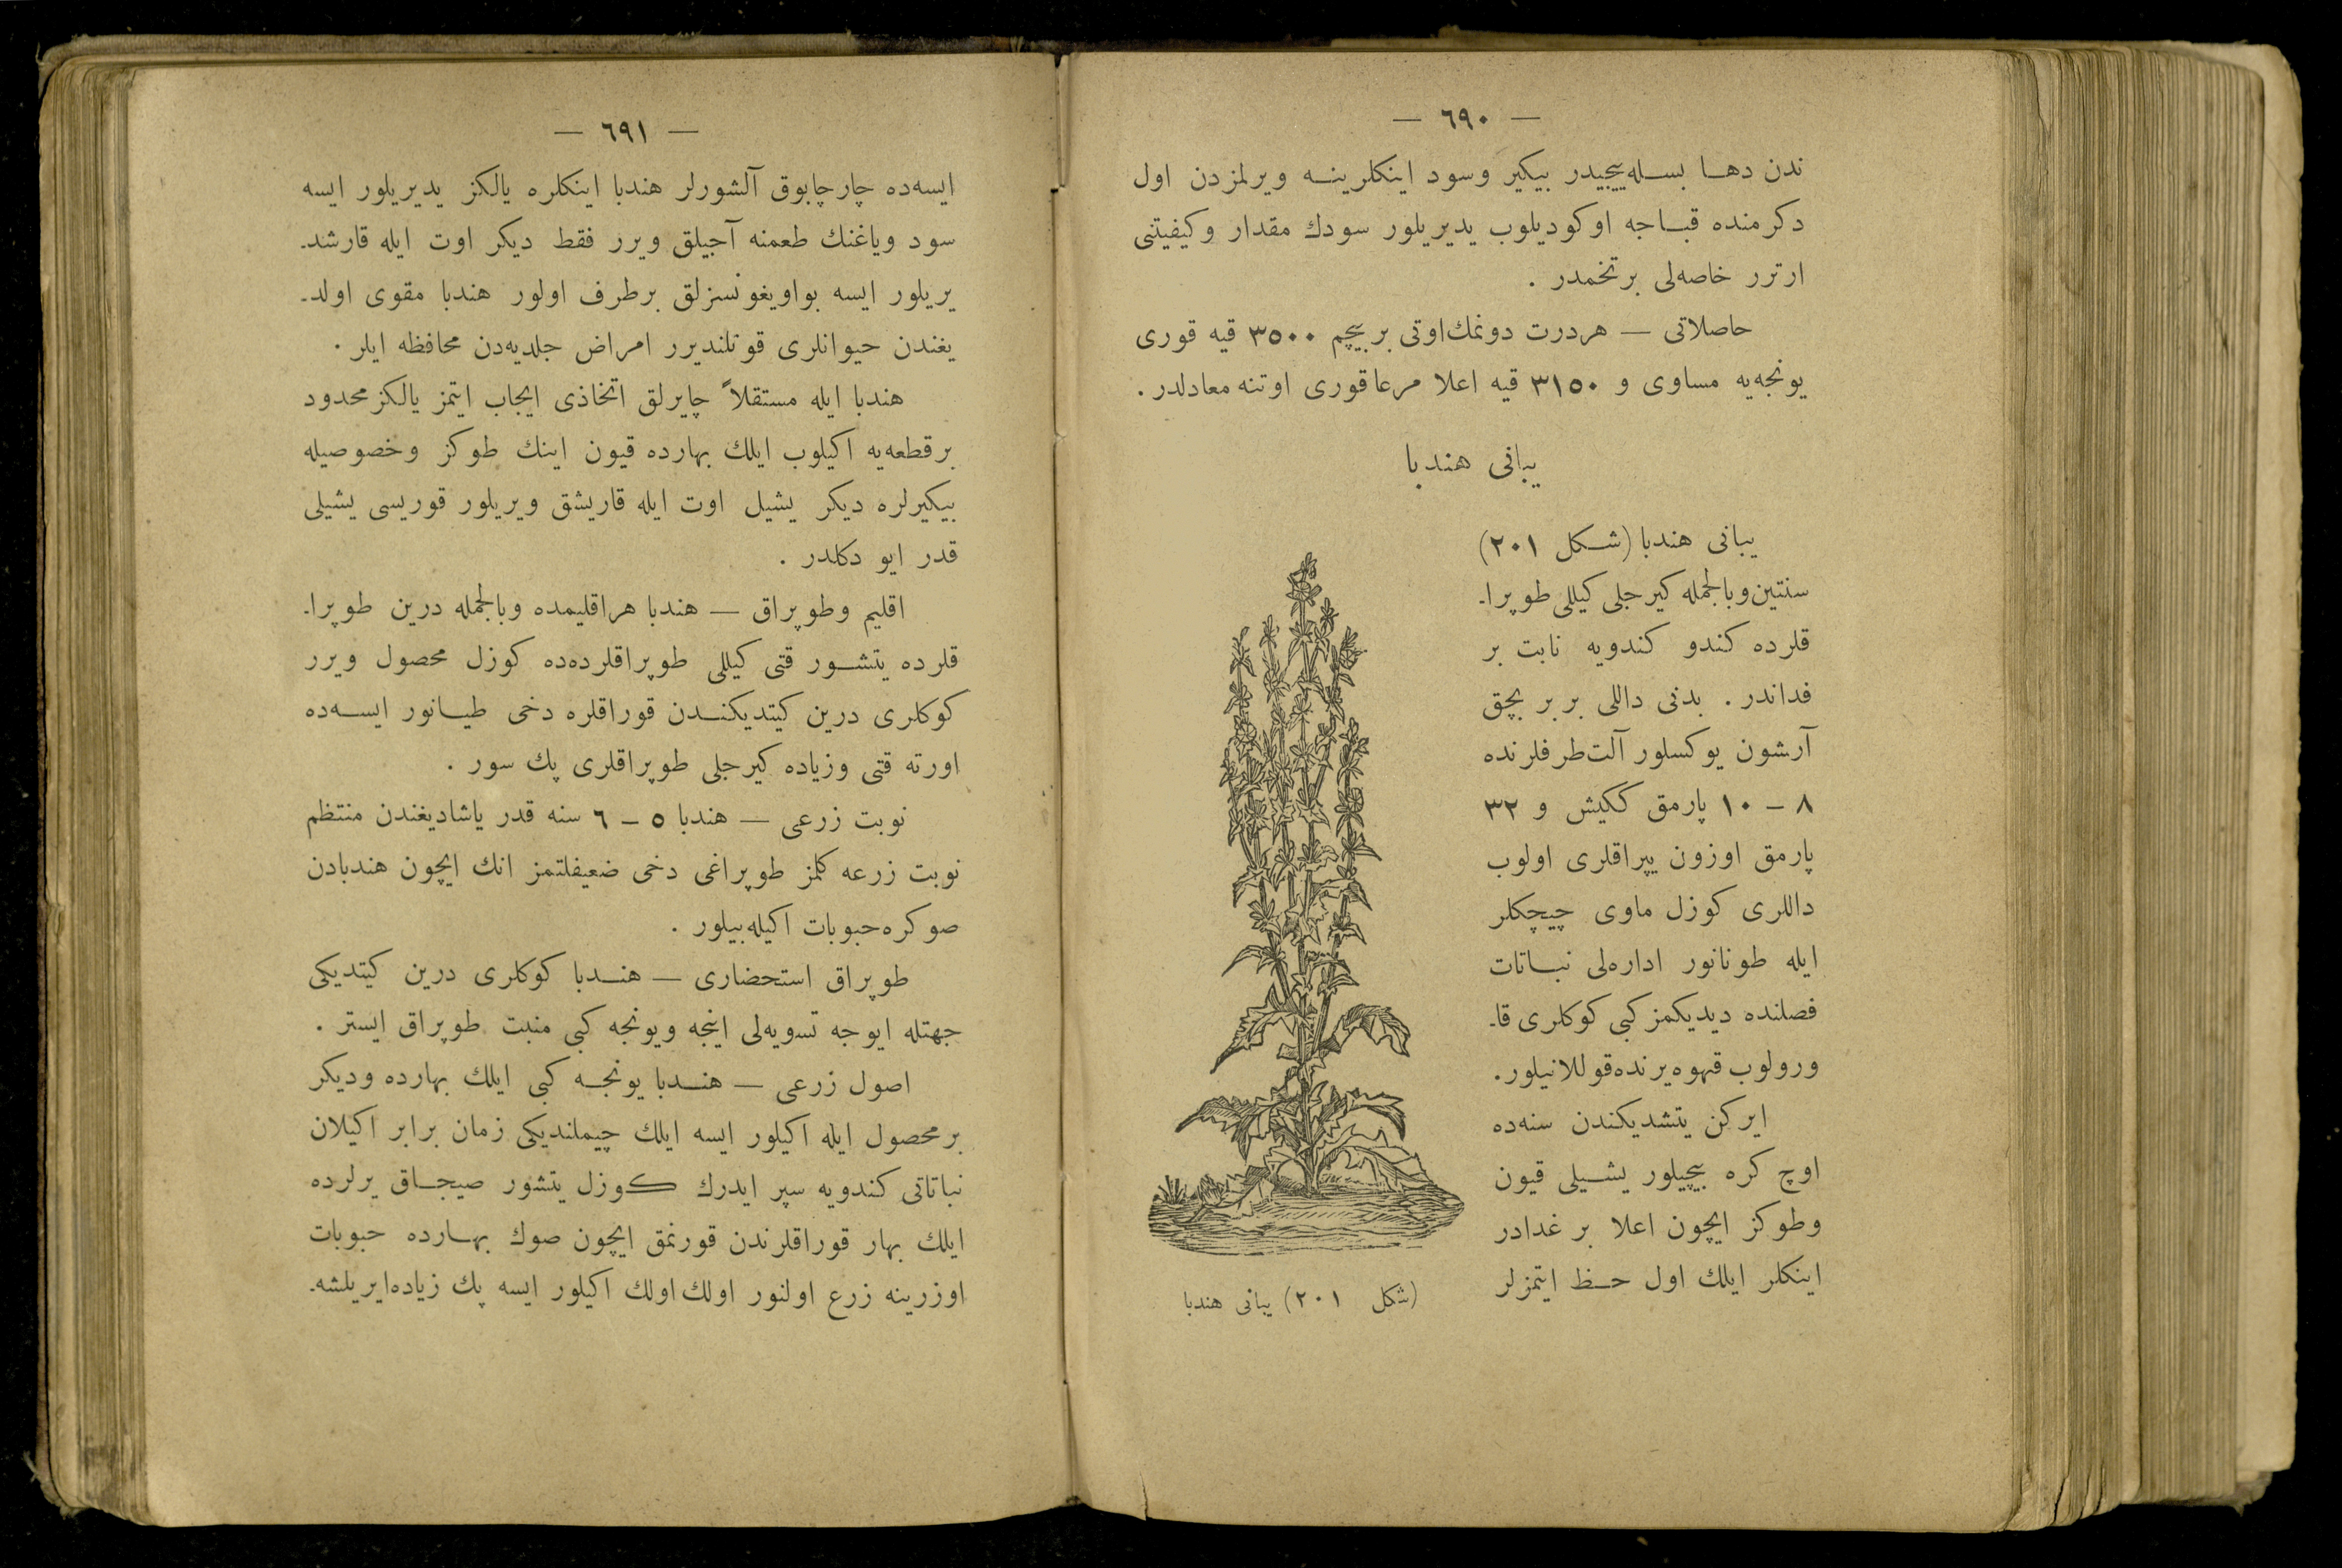 — ٦٩٠ —
ندن دها بسله‌ییجیدر بیكیر وسود اینكلرینه ویرلمزدن اول
دكرمنده قباجه اوكودیلوب یدیریلور سودك مقدار وكیفیتنی
ارترر خاصه‌لی برتخمدر .
حاصلاتی — هردرت دونمك‌اوتی بربیچم ٣٥٠٠ قیه قوری
یونجه‌یه مساوی و ٣١٥٠ قیه اعلا مرعاقوری اوتنه معادلدر .
یبانی هندبا
یبانی هندبا (شكل ٢٠١)
سنتین‌وبالجمله كیرجلی كیللی طوپرا-
قلرده كندو كندویه نابت بر
فداندر . بدنی داللی بربر بچق
آرشون یوكسلور آلت‌طرفلرنده
٨ – ١٠ پارمق ككیش و ٣٢
پارمق اوزون یپراقلری اولوب
داللری كوزل ماوی چیچكلر
ایله طونانور اداره‌لی نباتات
فصلنده دیدیكمز كبی كوكلری قا-
ورولوب قهوه‌یرنده‌قوللانیلور.
ایركن یتشدیكندن سنه‌ده
اوچ كره بیچیلور یشیلی قیون
وطوكز ایچون اعلا بر غدادر
اینكلر ایلك اول حظ ایتمزلر
(شكل ٢٠١) یبانی هندبا
— ٦٩١ —
ایسه‌ده چارچابوق آلشورلر هندبا اینكلره یالكز یدیریلور ایسه
سود ویاغنك طعمنه آجیلق ویرر فقط دیكر اوت ایله قارشد-
یریلور ایسه بواویغونسزلق برطرف اولور هندبا مقوی اولد-
یغندن حیوانلری قوتلندیرر امراض جلدیه‌دن محافظه ایلر .
هندبا ایله مستقلاً چایرلق اتخاذی ایجاب ایتمز یالكزمحدود
برقطعه‌یه اكیلوب ایلك بهارده قیون اینك طوكز وخصوصیله
بیكیرلره دیكر یشیل اوت ایله قاریشق ویریلور قوریسی یشیلی
قدر ایو دكلدر .
اقلیم وطوپراق — هندبا هراقلیمده وبالجمله درین طوپرا-
قلرده یتشور قتی كیللی طوپراقلرده‌ده كوزل محصول ویرر
كوكلری درین كیتدیكندن قوراقلره دخی طیانور ایسه‌ده
اورته قتی وزیاده كیرجلی طوپراقلری پك سور .
نوبت زرعی — هندبا ٥ – ٦ سنه قدر یاشادیغندن منتظم
نوبت زرعه كلمز طوپراغی دخی ضعیفلتمز انك ایچون هندبادن
صوكره‌حبوبات اكیله‌بیلور .
طوپراق استحضاری — هندبا كوكلری درین كیتدیكی
جهتله ایوجه تسویه‌لی اینجه ویونجه كبی منبت طوپراق ایستر .
اصول زرعی — هندبا یونجه كبی ایلك بهارده ودیكر
برمحصول ایله اكیلور ایسه ایلك چیملندیكی زمان برابر اكیلان
نباتاتی كندویه سپر ایدرك كوزل یتشور صیجاق یرلرده
ایلك بهار قوراقلرندن قورنمق ایچون صوك بهارده حبوبات
اوزرینه زرع اولنور اولك‌اولك اكیلور ایسه پك زیاده‌ایریلشه-